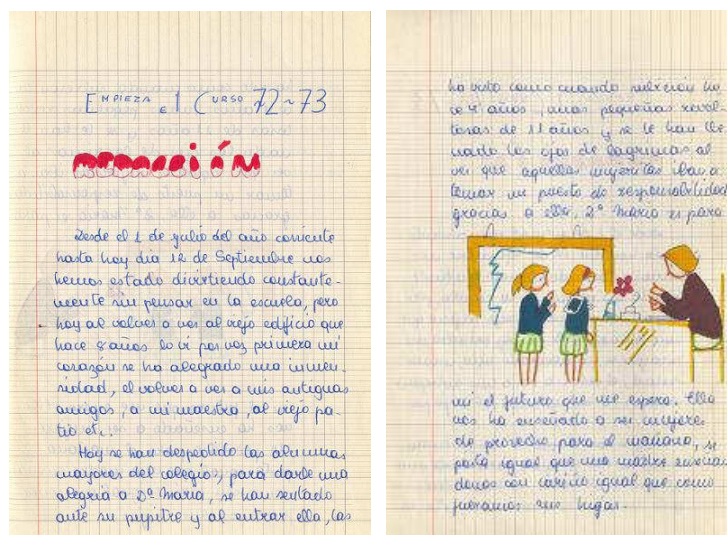 EMPIEZA el CURSO 72-73
REDACCIÓN
Desde el 1 de julio del año corriente
hasta hoy dia 12 de Septiembre nos
hemos estado divirtiendo constante-
mente sin pensar en la escuela, pero
hoy al volver a ver al viejo edificio que
hace 8 años lo vi por vez primera mi
corazón se ha alegrado una inmen-
sidad, el volver a ver a mis antiguas
amigas, a mi maestra, al viejo pa-
tio etc.
Hoy se han despedido las alumnas
mayores del colegio, para darle una
alegria a Dª Maria, se han sentado
ante su pupitre y al entrar ella, las
ha visto como cuando hicieron ha
ce 4 años, unas pequeñas revol-
tosas de 11 años y se le han lle-
nado los ojos de lagrimas al
ver que aquellas mujercitas iban a
tomar un puesto de responsabilidad
gracias a ella, Dª Maria es para
mi el futuro que me espera. Ella
nos ha enseñado a ser mujeres
de provecho para el mañana, se
porta igual que una madre enseñan
donos con cariño igual que como
fueramos sus hijas.